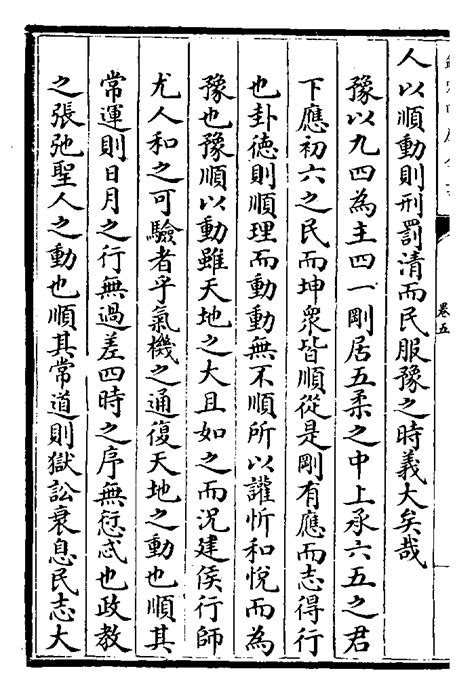 人以順動則刑罰清而民服豫之時義大矣哉
豫以九四為主四一剛居五柔之中上承六五之君
下應初六之民而坤衆皆順從是剛有應而志得行
也卦德則順理而動動無不順所以讙忻和悅而為
豫也豫順以動雖天地之大且如之而況建侯行師
尤人和之可驗者乎氣機之通復天地之動也順其
常運則日月之行無過差四時之序無愆忒也政教
之張弛聖人之動也順其常道則獄訟衰息民志大
卷五